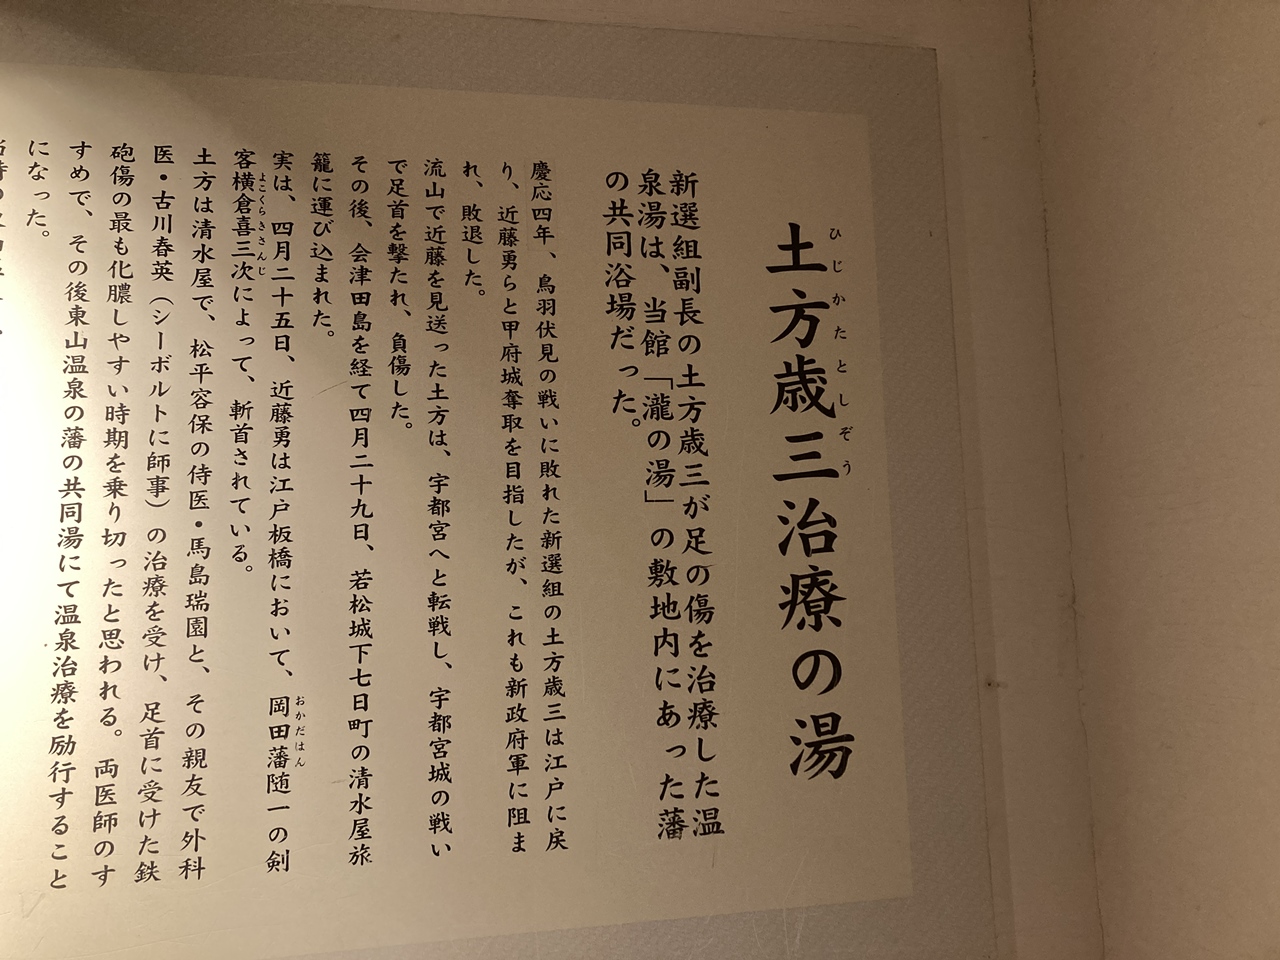 土方歳三治療の湯
ひじかたとしぞう
新選組副長の土方歳三が足の傷を治療した温
泉湯は、当館「瀧の湯」の敷地内にあった藩
の共同浴場だった。
慶応四年、鳥羽伏見の戦いに敗れた新選組の土方歳三は江戸に戻
り、近藤勇らと甲府城奪取を目指したが、これも新政府軍に阻ま
れ、敗退した。
流山で近藤を見送った土方は、宇都宮へと転戦し、宇都宮城の戦い
で足首を撃たれ、負傷した。
その後、会津田島を経て四月二十九日、若松城下七日町の清水屋旅
籠に運び込まれた。
実は、四月二十五日、近藤勇は江戸板橋において、岡田藩随一の剣
おかだはん
客横倉喜三次によって、斬首されている。
よこくらきさんじ
土方は清水屋で、松平容保の侍医・馬島瑞園と、その親友で外科
医・古川春英（シーボルトに師事）の治療を受け、足首に受けた鉄
砲傷の最も化膿しやすい時期を乗り切ったと思われる。両医師のす
すめで、その後東山温泉の藩の共同湯にて温泉治療を励行すること
になった。